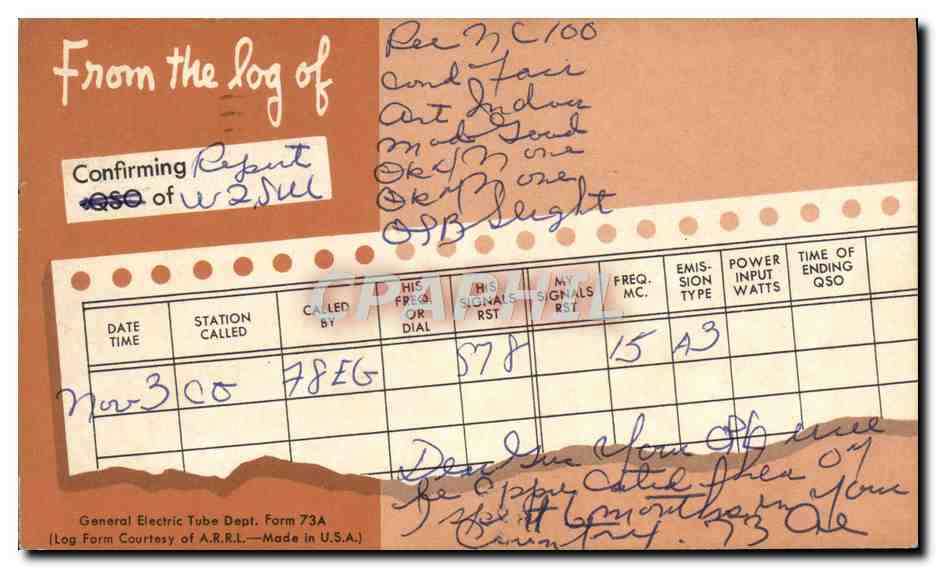 From the log of
Confirming Report
QSO of W2
Rec NC100
Cond Fair
Ant Indoor
Mod Good
QRM None
QRN None
QSB Slight
CPAPHIL
DATE TIME
STATION CALLED
CALLED BY
HIS FREQ. OR DIAL
HIS SIGNALS RST
MY SIGNALS RST
FREQ. MC.
EMIS-
SION
TYPE
POWER INPUT WATTS
TIME OF ENDING QSO
Nov 3 CQ 578 15 A3
Dear Your will
be Appreciated
6 months in Your
Country. 73
General Electric Tube Dept. Form 73A
(Log Form Courtesy of A.R.R.L.—Made in U.S.A.)